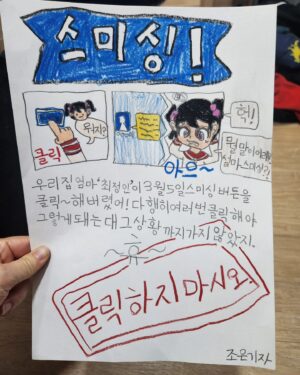 스미싱!
클릭
뭐지?
아으~
헉!
뭔 말이에요
엄마 스미싱?!
우리집 엄마 '최정인'이 3월 5일 스미싱 버튼을
클릭~ 해 버렸어! 다행히 여러 번 클릭해야
그렇게 돼는대 그 상황까지 가지 않았지.
클릭하지마시오.
조은기자